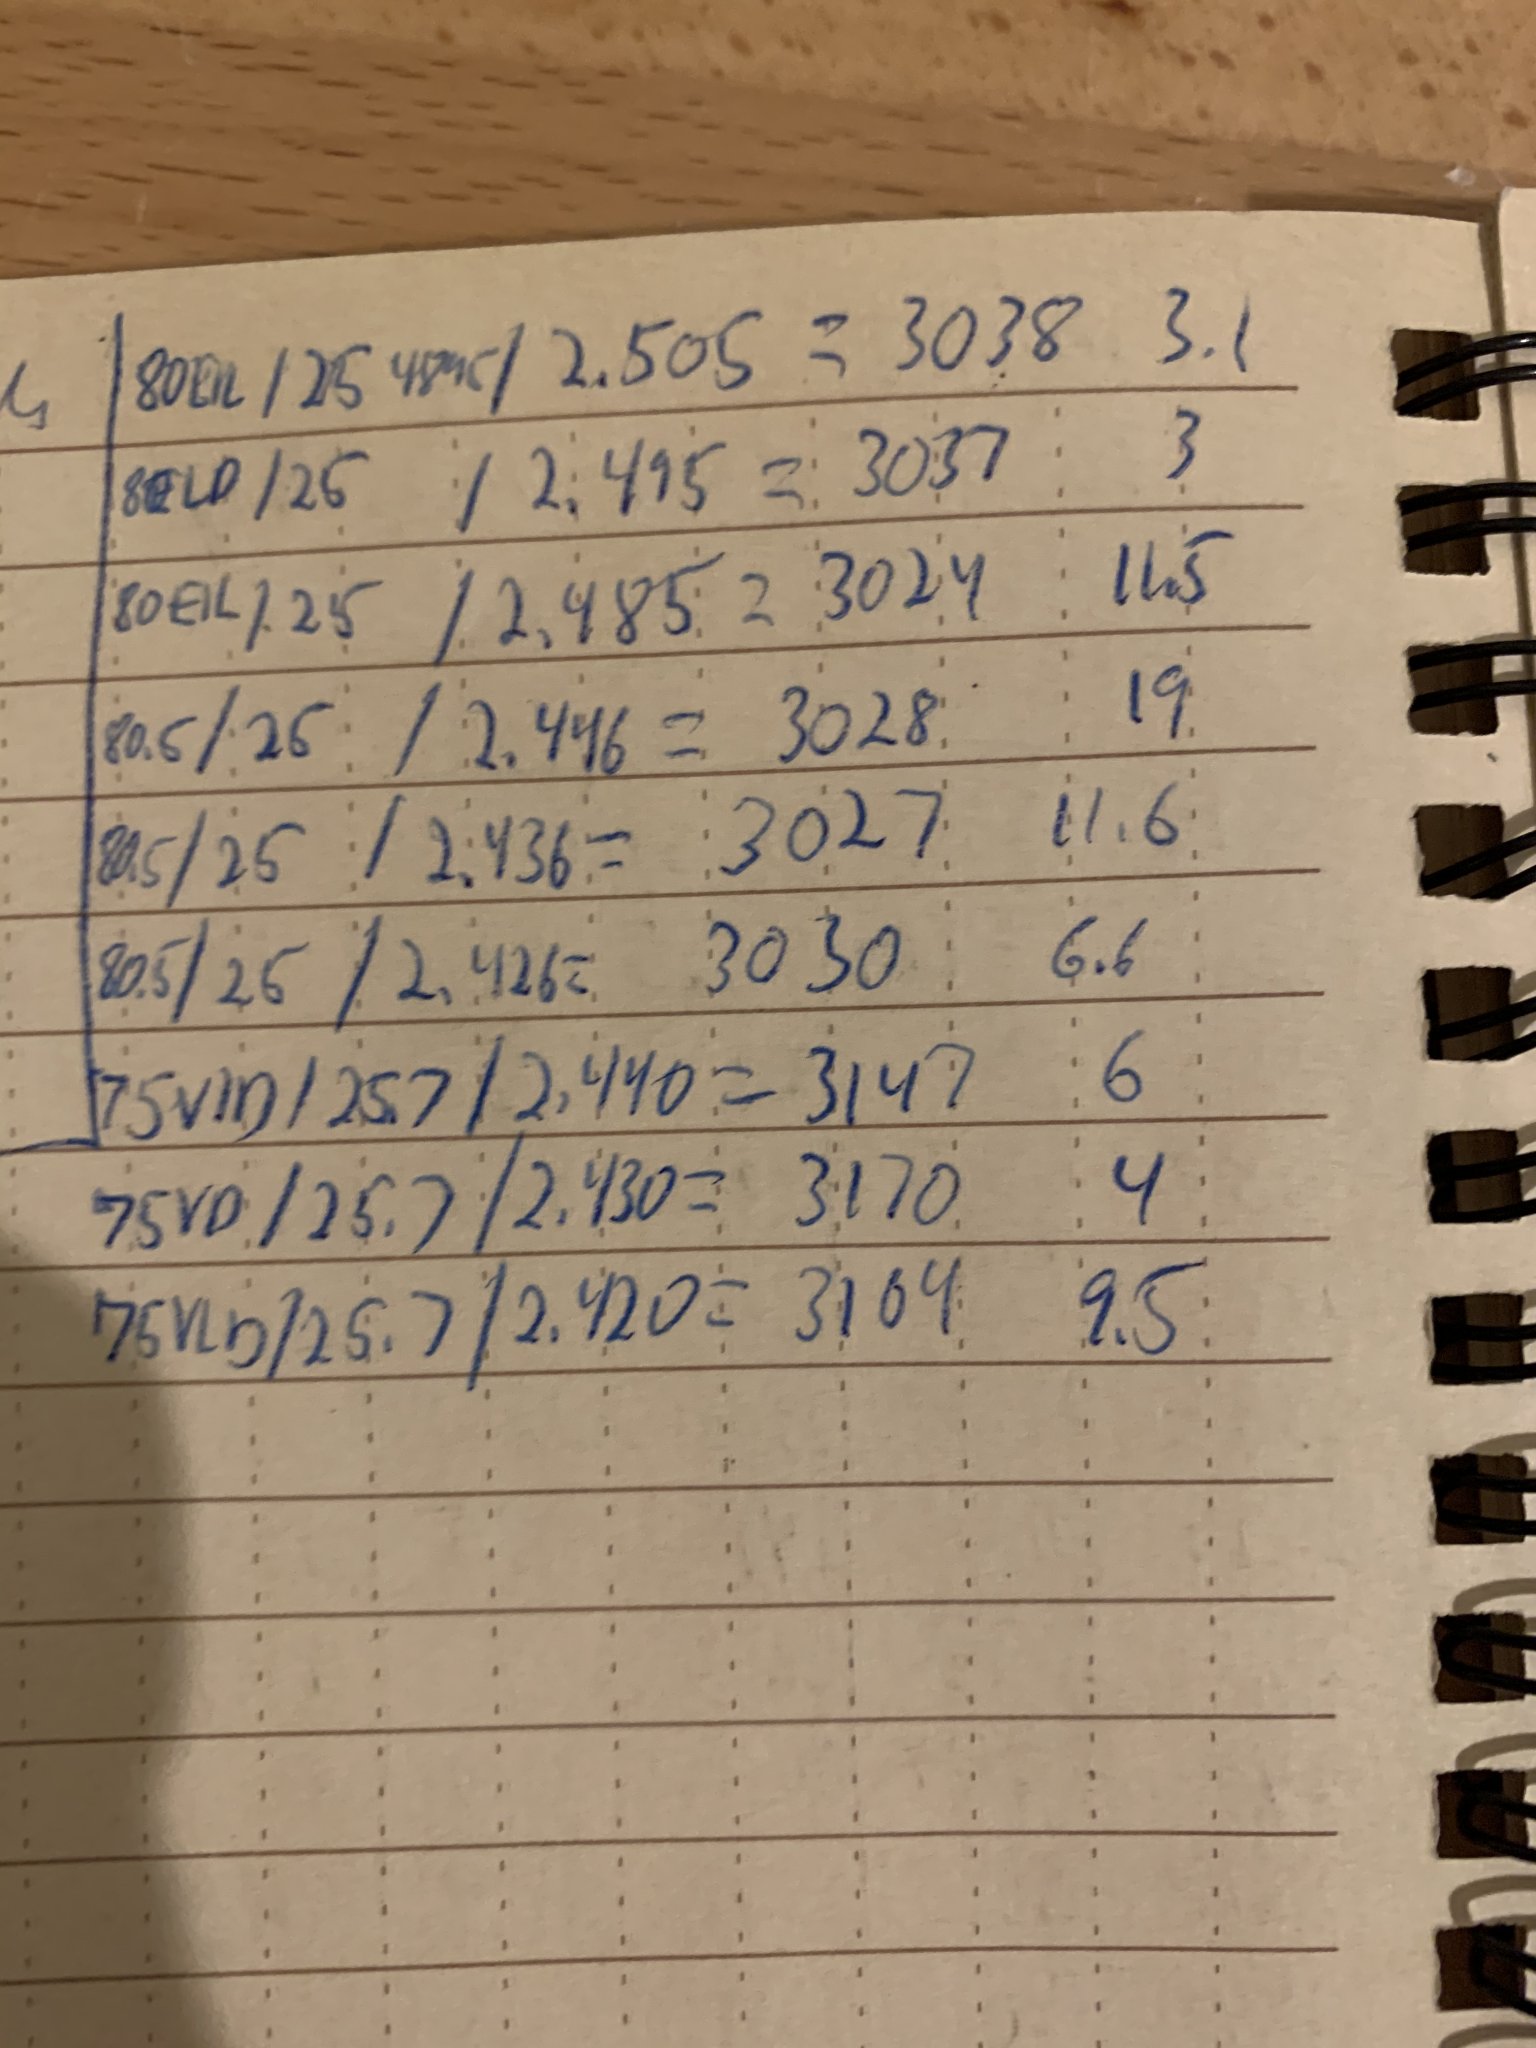 80ELD / 25 4895 / 2.505 = 3038 3.1
80ELD / 25 / 2.495 = 3037 3
80ELD / 25 / 2.485 = 3024 11.5
80.5 / 25 / 2.446 = 3028 19
80.5 / 25 / 2.436 = 3027 11.6
80.5 / 25 / 2.426 = 3030 6.6
75VLD / 25.7 / 2.440 = 3147 6
75VLD / 25.7 / 2.430 = 3170 4
75VLD / 25.7 / 2.420 = 3164 9.5